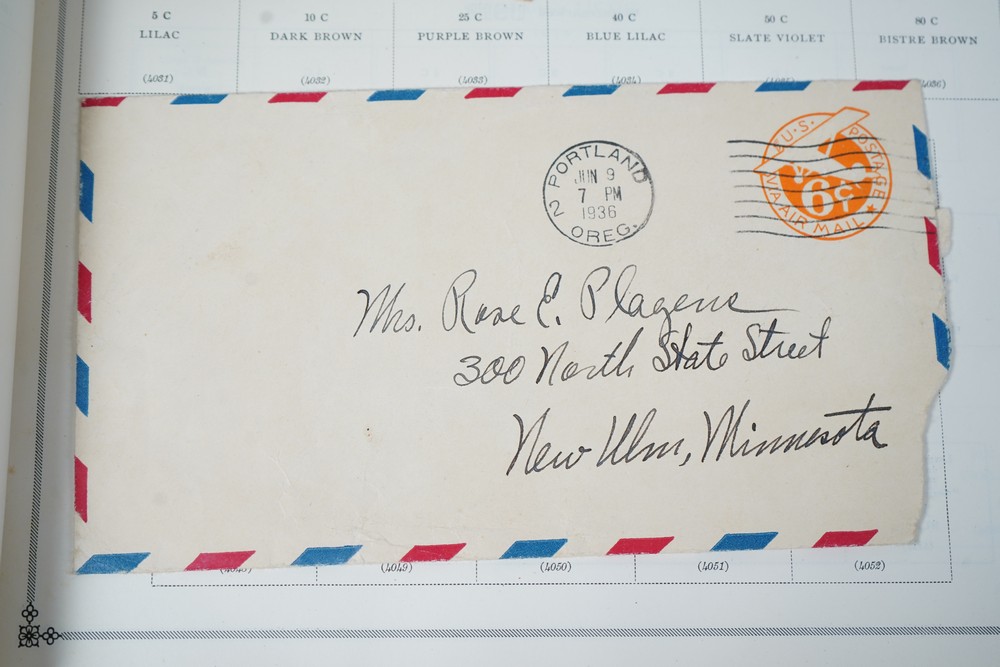 5 C 10 C 25 C 40 C 50 C 80 C
LILAC DARK BROWN PURPLE BROWN BLUE LILAC SLATE VIOLET BISTRE BROWN
(4031) (4032) (4033) (4034) 4036)
PORTLAND
JUN 9
7 PM
1936
2 OREG.
U.S. POSTAGE
6¢
VIA AIR MAIL
Mrs. Rose E. Plagens
300 North State Street
New Ulm, Minnesota
(4049) (4050) (4051) (4052)